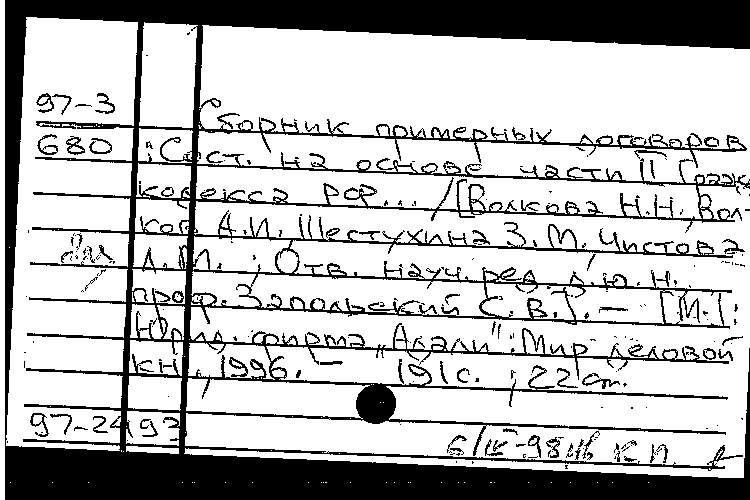 97-3
680
Сборник примерных договоров
: Сост. на основе части II Гражд.
кодекса РФ... / [Волкова Н.Н., Вол-
ков А.И., Шестухина З.М., Чистова
Л.М. ; Отв. науч. ред. д.ю.н.
проф. Запольский С.В.]. - [М.]:
Юрид. фирма "Адали": Мир деловой
кн., 1996. - 191с. ; 22 см.
97-2493
6/IV-98 К.П.